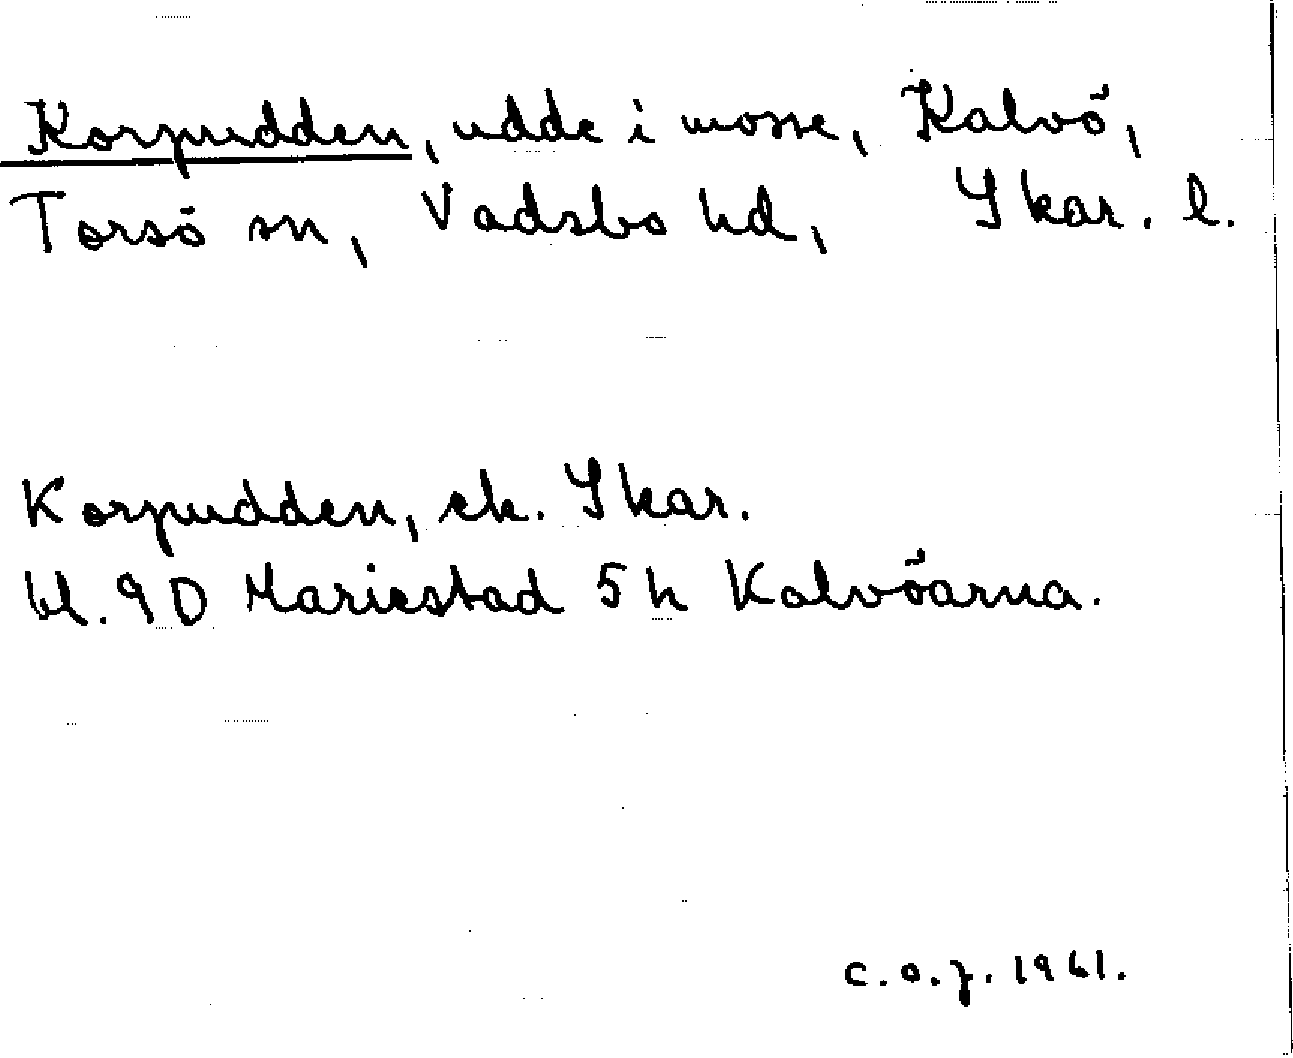 Korpudden, udde i mosse, Kalvö,
Torsö sn, Vadsbo hd, Skar. l.
Korpudden, ek. Skar.
bl. 9D Mariestad 5h Kalvöarna.
c.o.z. 1961.